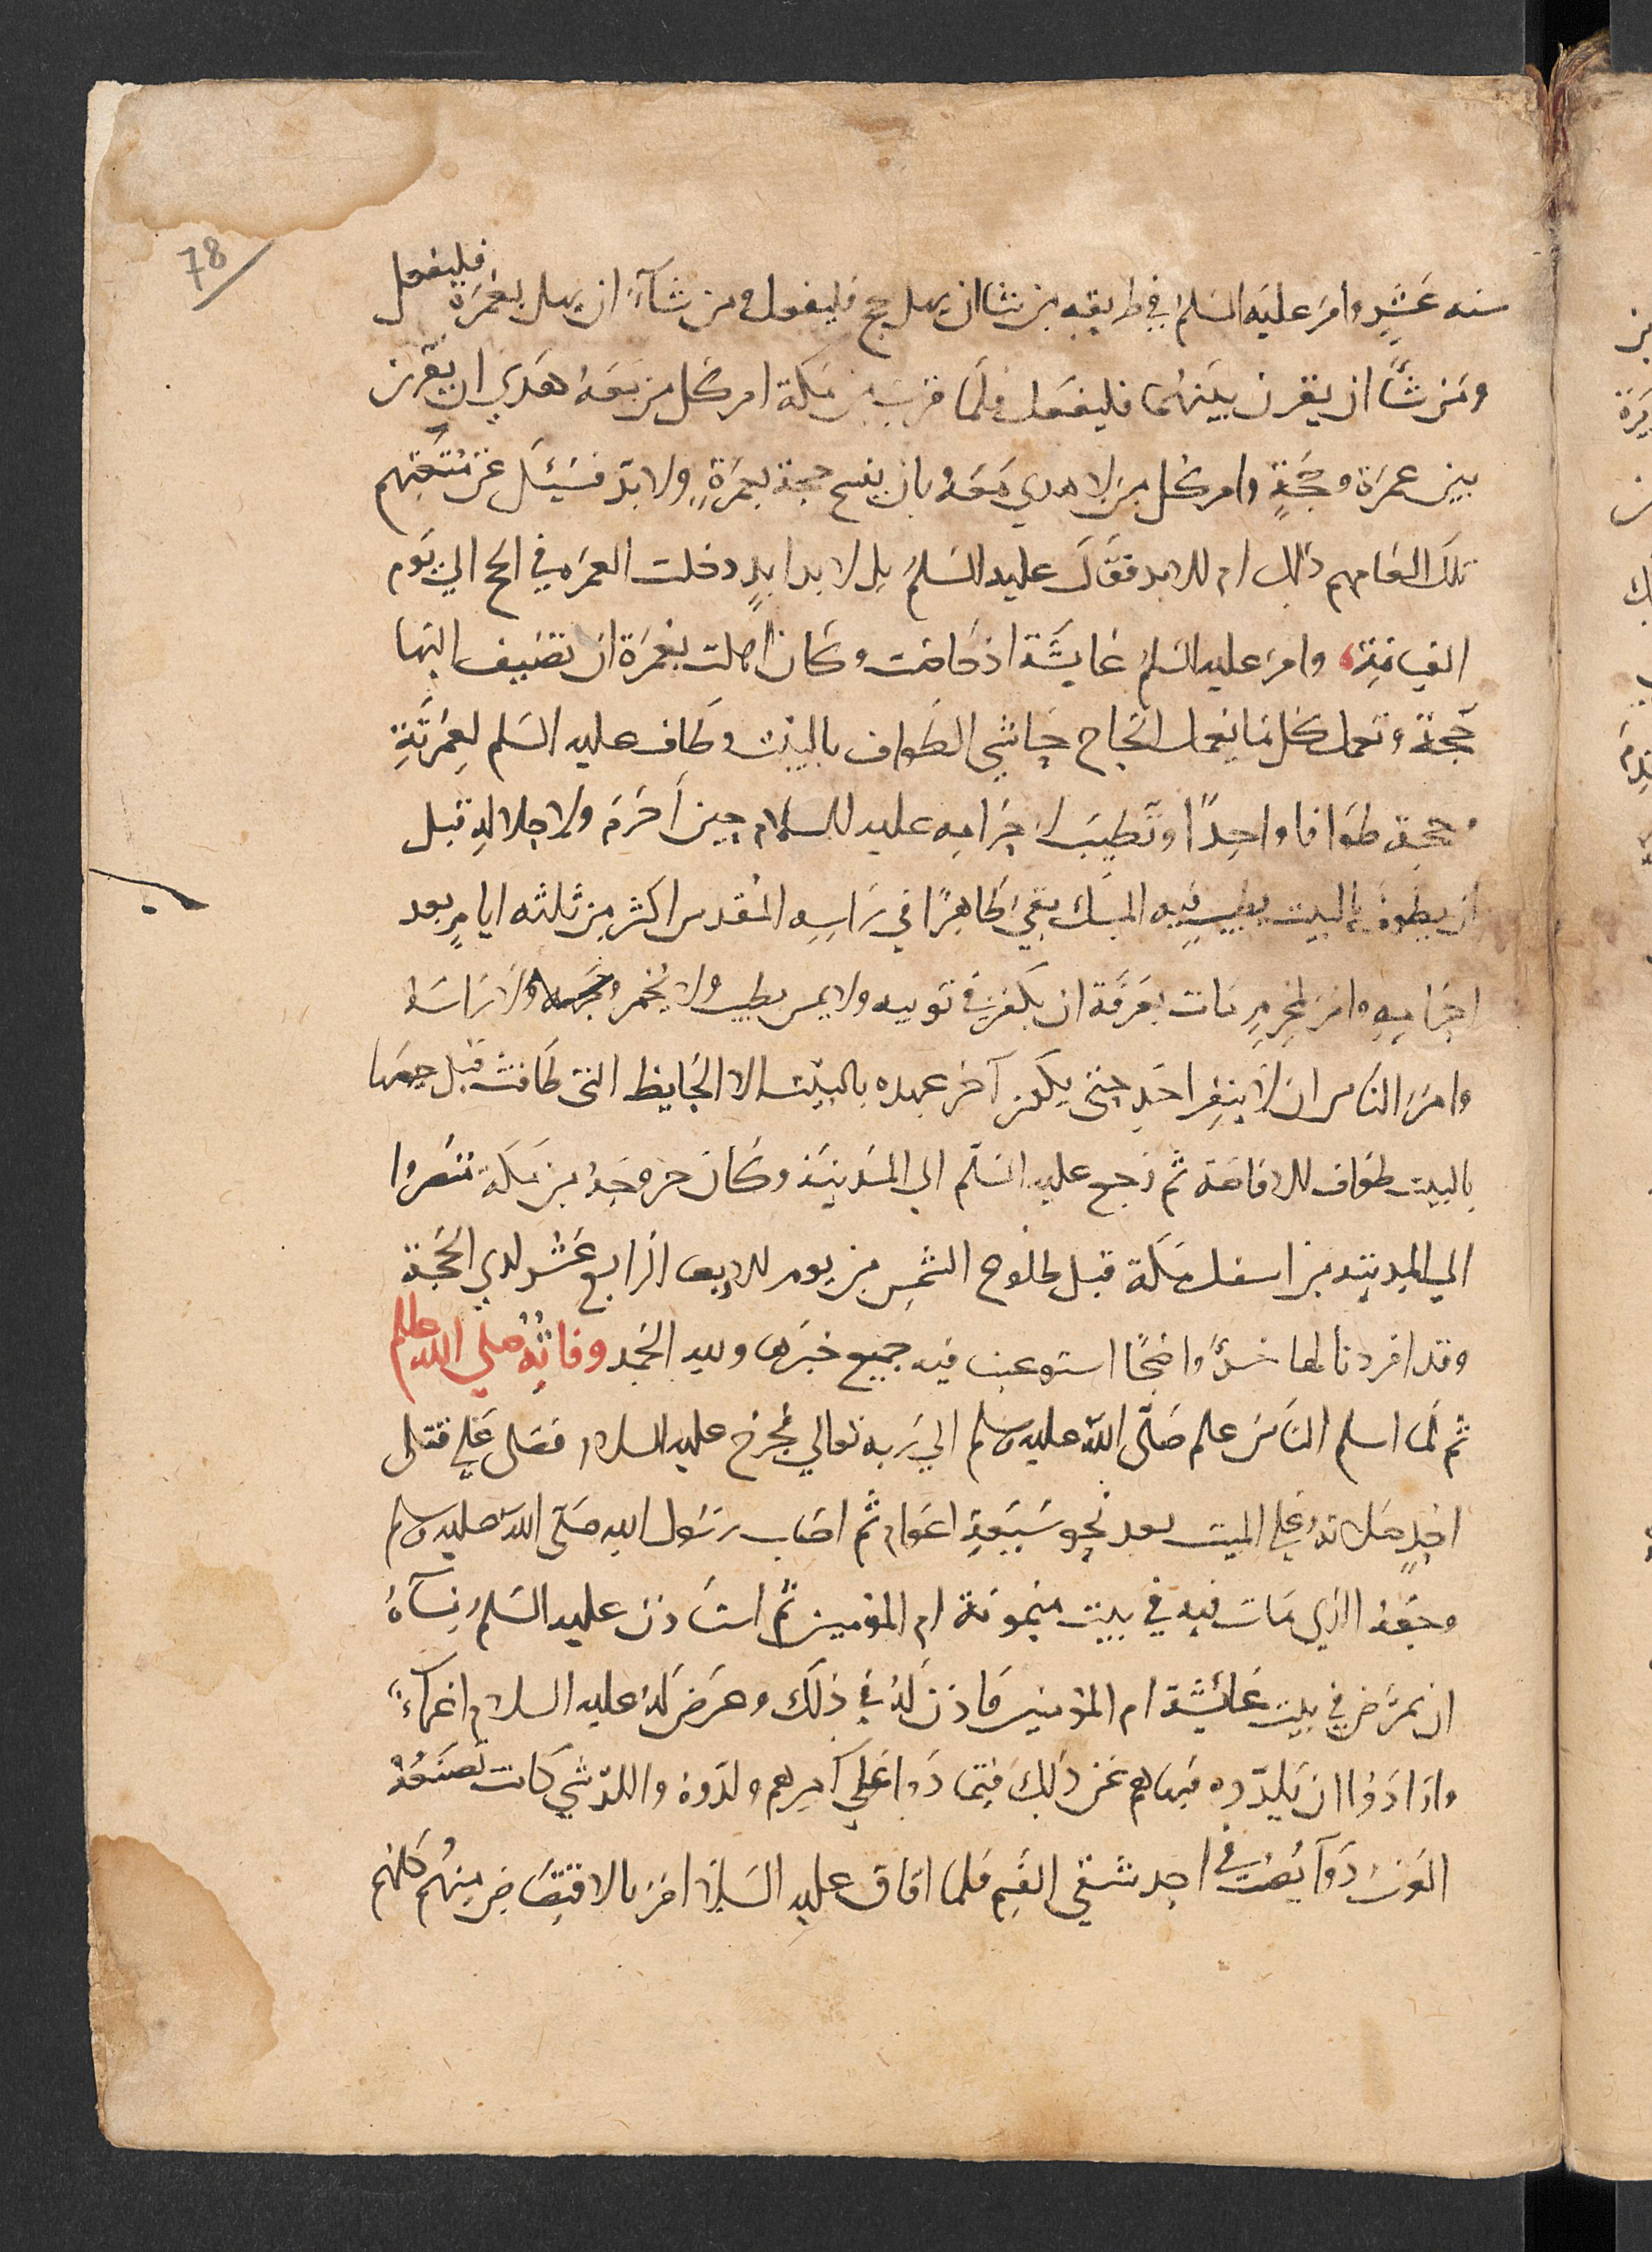 78
سنه عَشرٍ وامر عليه السلم في طريقه من شا ان يهل بحج فليفعل ومن شآء ان يهل بعُمرَة فليفعل
ومَن شآ ان يقرن بينهُما فليفعَل فلمّا قرب من مكة امر كل من مَعَهُ هَدي ان يقرن
بين عمرَة وحجَّةٍ وامر كُل من لا هدي مَعَهُ بان يفسح حجة بعمرَةٍ ولا بدّ فسُئِل عَن مُتعَتِهم
تلك العامهم ذلك ام للابد فقَالَ عليه السَلمُ بل لابد ابدٍ دخلت العمَره في الحج الي يَوم
القيامَةِ وامرَ عليه السَلم عَايشَة اذ حَاضت وكَان اهلت بعُمرَة ان تضيف اليها
حَجة وتعمل كل مَا يَعمل الحَاج حَاشي الطَواف بالبيت وطَاف عليه السَلم لِعُمرَتِهِ
وحجته طوَافا واحِدًا وتَطيبَ لاحرَامه عليه السلام حين أحرَمَ ولاحلالهِ قبل
ان يطوفَ بالبيت بطيب فيه المِسك بقيَ ظاهِرًا في رَاسِهِ المُقدس اكثر مِن ثلثه ايامٍ بعد
احرَامِهِ وامَر لمحرمٍ مَات بعَرفَة ان يكفن في ثوبيه ولا يمس بطيب ولا يخمر وجهه ولا رَاسَه
وامَر النَاس ان لا ينفِر احَد حتى يكُون آخر عهده بالبَيت الا الحَايض التي طَافت قبل حيضَها
بالبيت طوَاف الافاضَة ثم رَجع عليه السَلم الي المَدينَة وكَان خروجهُ من مكَة
الي المدينَة من اسفل مكَة قبل طلُوع الشمسِ من يوم الاربعا الرَابع عَشر لذي الحَجة
وقد افردنا لها واضحًا استوعبت فيه جميع خبَرها ولله الحَمد وفاته صلي الله عليه وسلم
ثم لمَا اسلم النَاسَ علم صَلّى الله عليه وسلم الي رَبه تعالي فخرَج عليه السلام فصَلى عَلي قتلى
احُدٍ صَلاتهُ علي الميت بعد نحو سَبعَةِ اعوَام ثم اصَاب رَسُول الله صَلى الله عليه وسلم
وجَعهُ الذي مَات فيه في بيت ميمونَة ام المؤمنين ثم استَاذن عليه السَلمُ نِسآهُ
ان يمرَّض في بيت عَائشَة ام المؤمنين فاذن لَهُ في ذلك وعَرضَ لَهُ عليه السلام اغماءً
وارَادُوا ان يَلِدّوه فنهاهم عَن ذلكَ فتمَادَوا عَلي امرهم ولدّوهُ واللدّ شي كَانت تصنَعُهُ
العَرَب دَوآ يُصَب في احد شقي الفَم فلما افاق عليه السَلام امَر بالاقتِصَاص مِنهُم كلهُم